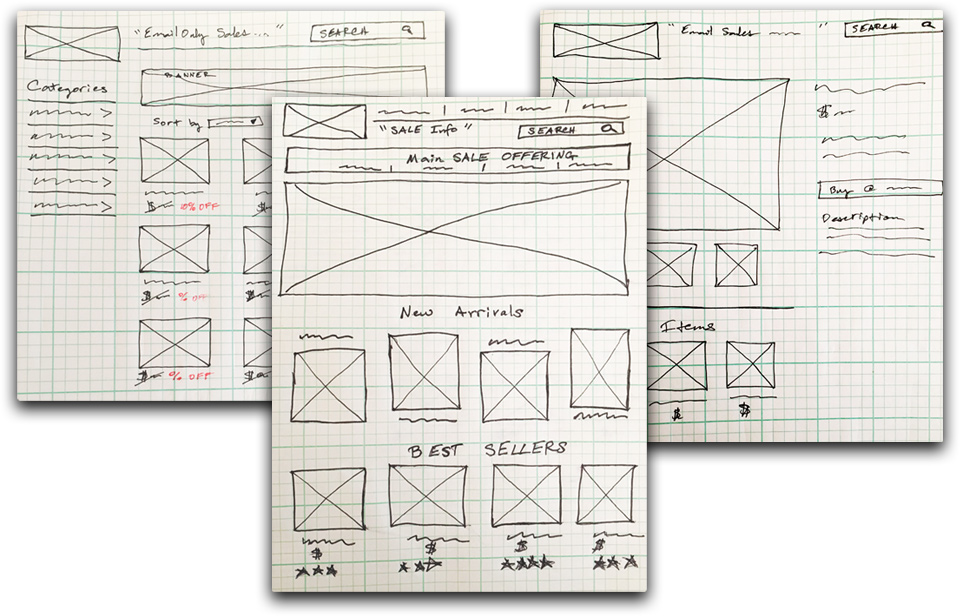 "Email Only Sales ..."
SEARCH
Categories
BANNER
Sort by
$
10% OFF
$
$
% OFF
$
$
% OFF
$
"SALE Info"
SEARCH
Main SALE OFFERING
New Arrivals
BEST SELLERS
$
$
$
$
"Email Sales "
SEARCH
$
Buy @
Description
Items
$
$